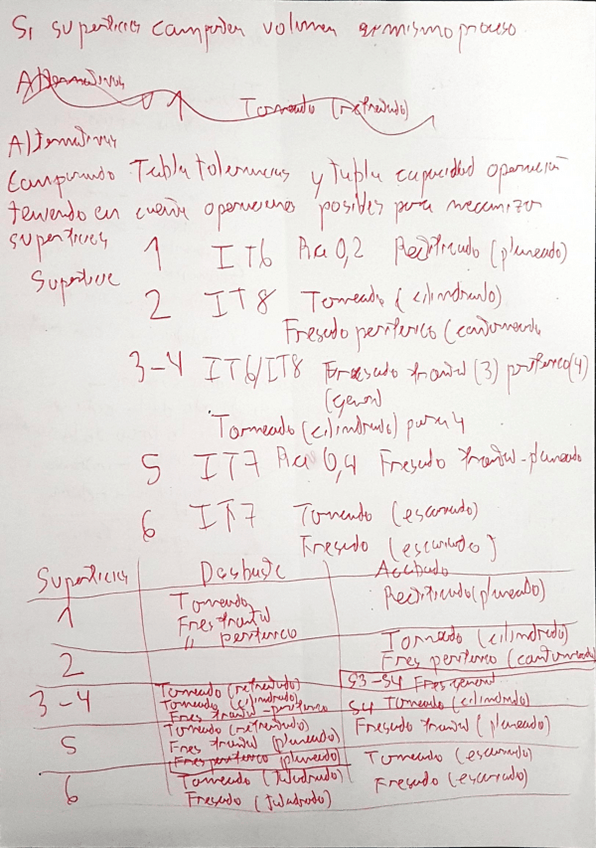 Si superficies comparten volumen es mismo proceso
Alternativas
1 Torneado (refrentado)
Alternativas
Comparando Tabla tolerancias y tabla capacidad operación
teniendo en cuenta operaciones posibles para mecanizar
superficies
Superficie 1 IT6 Ra 0,2 Rectificado (planeado)
2 IT8 Torneado (cilindrado)
Fresado periferico (contorneado
3-4 IT6/IT8 Fresado frontal (3) periferico (4)
(general)
Torneado (cilindrado) para 4
5 IT7 Ra 0,4 Fresado frontal-planeado
6 IT7 Torneado (escariado)
Fresado (escariado)
Superficies Desbaste Acabado
1 Torneado Rectificado (planeado)
Fres frontal
" periferico
2 Torneado (cilindrado)
Fres periferico (contorneado)
3-4 Torneado (refrentado) S3-S4 Fres general
Torneado (cilindrado) S4 Torneado (cilindrado)
Fres frontal-periferico
5 Torneado (refrentado) Fresado frontal (planeado)
Fres frontal (planeado)
Fres periferico (planeado)
6 Torneado (taladrado) Torneado (escariado)
Fresado (taladrado) Fresado (escariado)